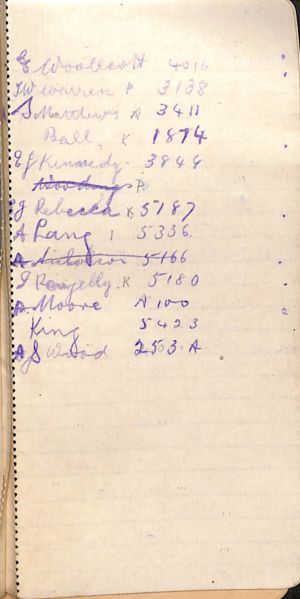 E Woolecott 4016
JW Warren P 3138
S Matthews A 3411
Ball K 1874
E J Kennedy 3848
Woodings P
J Rebecca K 5187
A Lang 1 5336
A Nicholson 5166
J K 5180
A Moore A 100
King 5423
A J S Wood 253 A